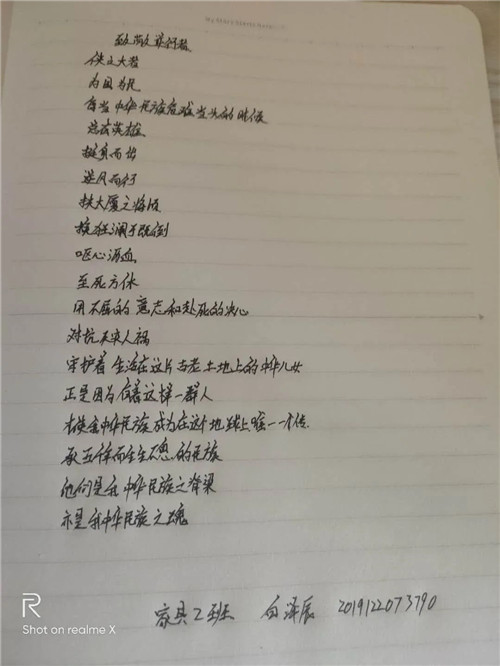 致敬逆行者
侠之大者
为国为民
每当中华民族危难当头的时候
总有英雄
挺身而出
逆风而行
扶大厦之将倾
挽狂澜于既倒
呕心沥血
至死方休
用不屈的意志和赴死的决心
对抗天灾人祸
守护着生活在这片古老土地上的中华儿女
正是因为有着这样一群人
才使全中华民族成为在这个地球上唯一一个传
承五千年而生生不息的民族
他们是我中华民族之脊梁
亦是我中华民族之魂
家具2班 白泽辰 2019122073790
R
Shot on realme X